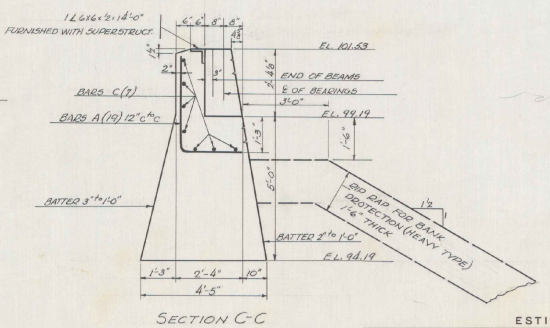 1 L 6x6x½=14'-0"
FURNISHED WITH SUPERSTRUCT.
6" 6" 8" 8"
4½"
1½"
2"
3"
EL. 101.53
END OF BEAMS
℄ OF BEARINGS
2'-4⅛"
3'-0"
BARS C(7)
BARS A(19) 12" c to c
EL. 99.19
1'-3"
1'-6"
5'-0"
BATTER 3" to 1'-0"
RIP RAP FOR BANK
PROTECTION (HEAVY TYPE)
1'-6" THICK
1½
1
BATTER 2" to 1'-0"
EL. 94.19
1'-3" 2'-4" 10"
4'-5"
SECTION C-C
ESTI